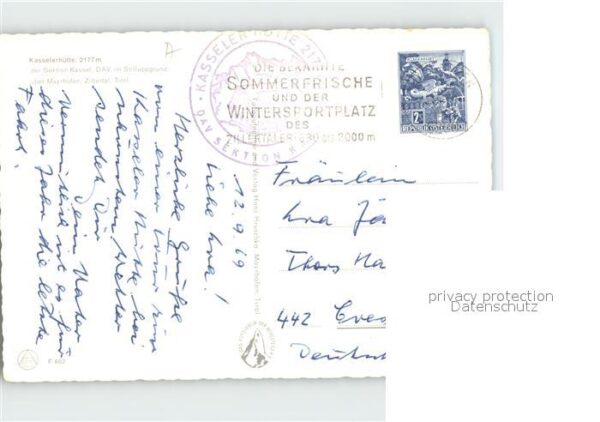 Kasselerhütte, 2177 m
der Sektion Kassel, DAV, im Stilluppgrund,
über Mayrhofen, Zillertal, Tirol
KASSELER HÜTTE 2177
DAV SEKTION K
DIE BEKANNTE
SOMMERFRISCHE
UND DER
WINTERSPORTPLATZ
DES
ZILLERTALES 630 bis 2000 m
2S
REPUBLIK ÖSTERREICH
12.9.69
Liebe Ura!
Herzliche Grüße
von einer Tour zur
Kasseler Hütte bei
schönstem Wetter
sendet Dir
Dein Vater
Vermutlich ist es für
dieses Jahr die letzte
Fahrt.
Fräulein
Ura Jä
Thors Ha
442
Deutsch
Verlag Hans Hruschka, Mayrhofen, Tirol
F 602
privacy protection
Datenschutz